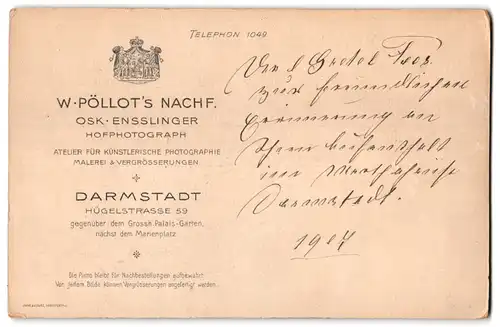 TELEPHON 1049
W. PÖLLOT'S NACHF.
OSK. ENSSLINGER
HOFPHOTOGRAPH
ATELIER FÜR KÜNSTLERISCHE PHOTOGRAPHIE
MALEREI & VERGRÖSSERUNGEN
DARMSTADT
HÜGELSTRASSE 59
gegenüber dem Grossh. Palais-Garten,
nächst dem Marienplatz
Die Platte bleibt für Nachbestellungen aufbewahrt.
Von jedem Bilde können Vergrösserungen angefertigt werden.
Gretel
zur freundlichen
Erinnerung an
Ihren Aufenthalt
im
Darmstadt.
1907